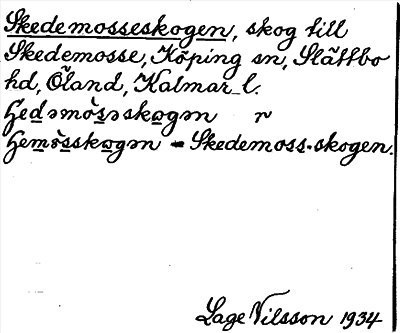 Skedemosseskogen, skog till
Skedemosse, Köping sn, Slättbo
hd, Öland, Kalmar l.
Hedəmòsəskogən r
Hemòsskogən = Skedemoss-skogen.
Lage Nilsson 1934